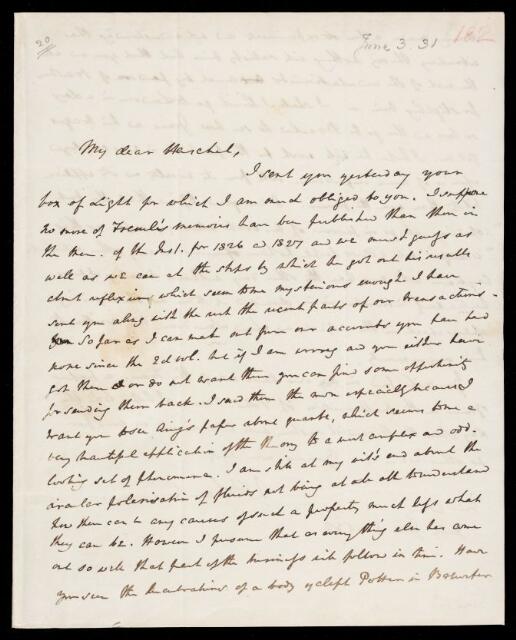 20
June 3. 31
182
My dear Herschel,
I sent you yesterday your
box of Light for which I am much obliged to you. I suppose
no more of Fresnel's memoirs have been published than those in
the Mem. of the Inst. for 1826 and 1827 and we must guess as
well as we can at the steps by which he got out his results
about reflexion, which seem to me mysterious enough. I have
sent you along with the rest the recent parts of our transactions.
So far as I can make out from our accounts you have had
none since the 2d vol. but if I am wrong and you either have
got them or do not want them you can find some opportunity
for sending them back. I send them the more especially because I
want you to see Airy's paper about quartz, which seems to me a
very beautiful application of the theory to a most complex and odd-
looking set of phenomena. I am still at my wit's end about the
circular polarisation of fluids not being at all able to understand
how there can be any causes of such a property much less what
they can be. However I presume that as every thing else has come
out so well that part of the business will follow in time. Have
you seen the lucubrations of a body yclept Potter in Brewster